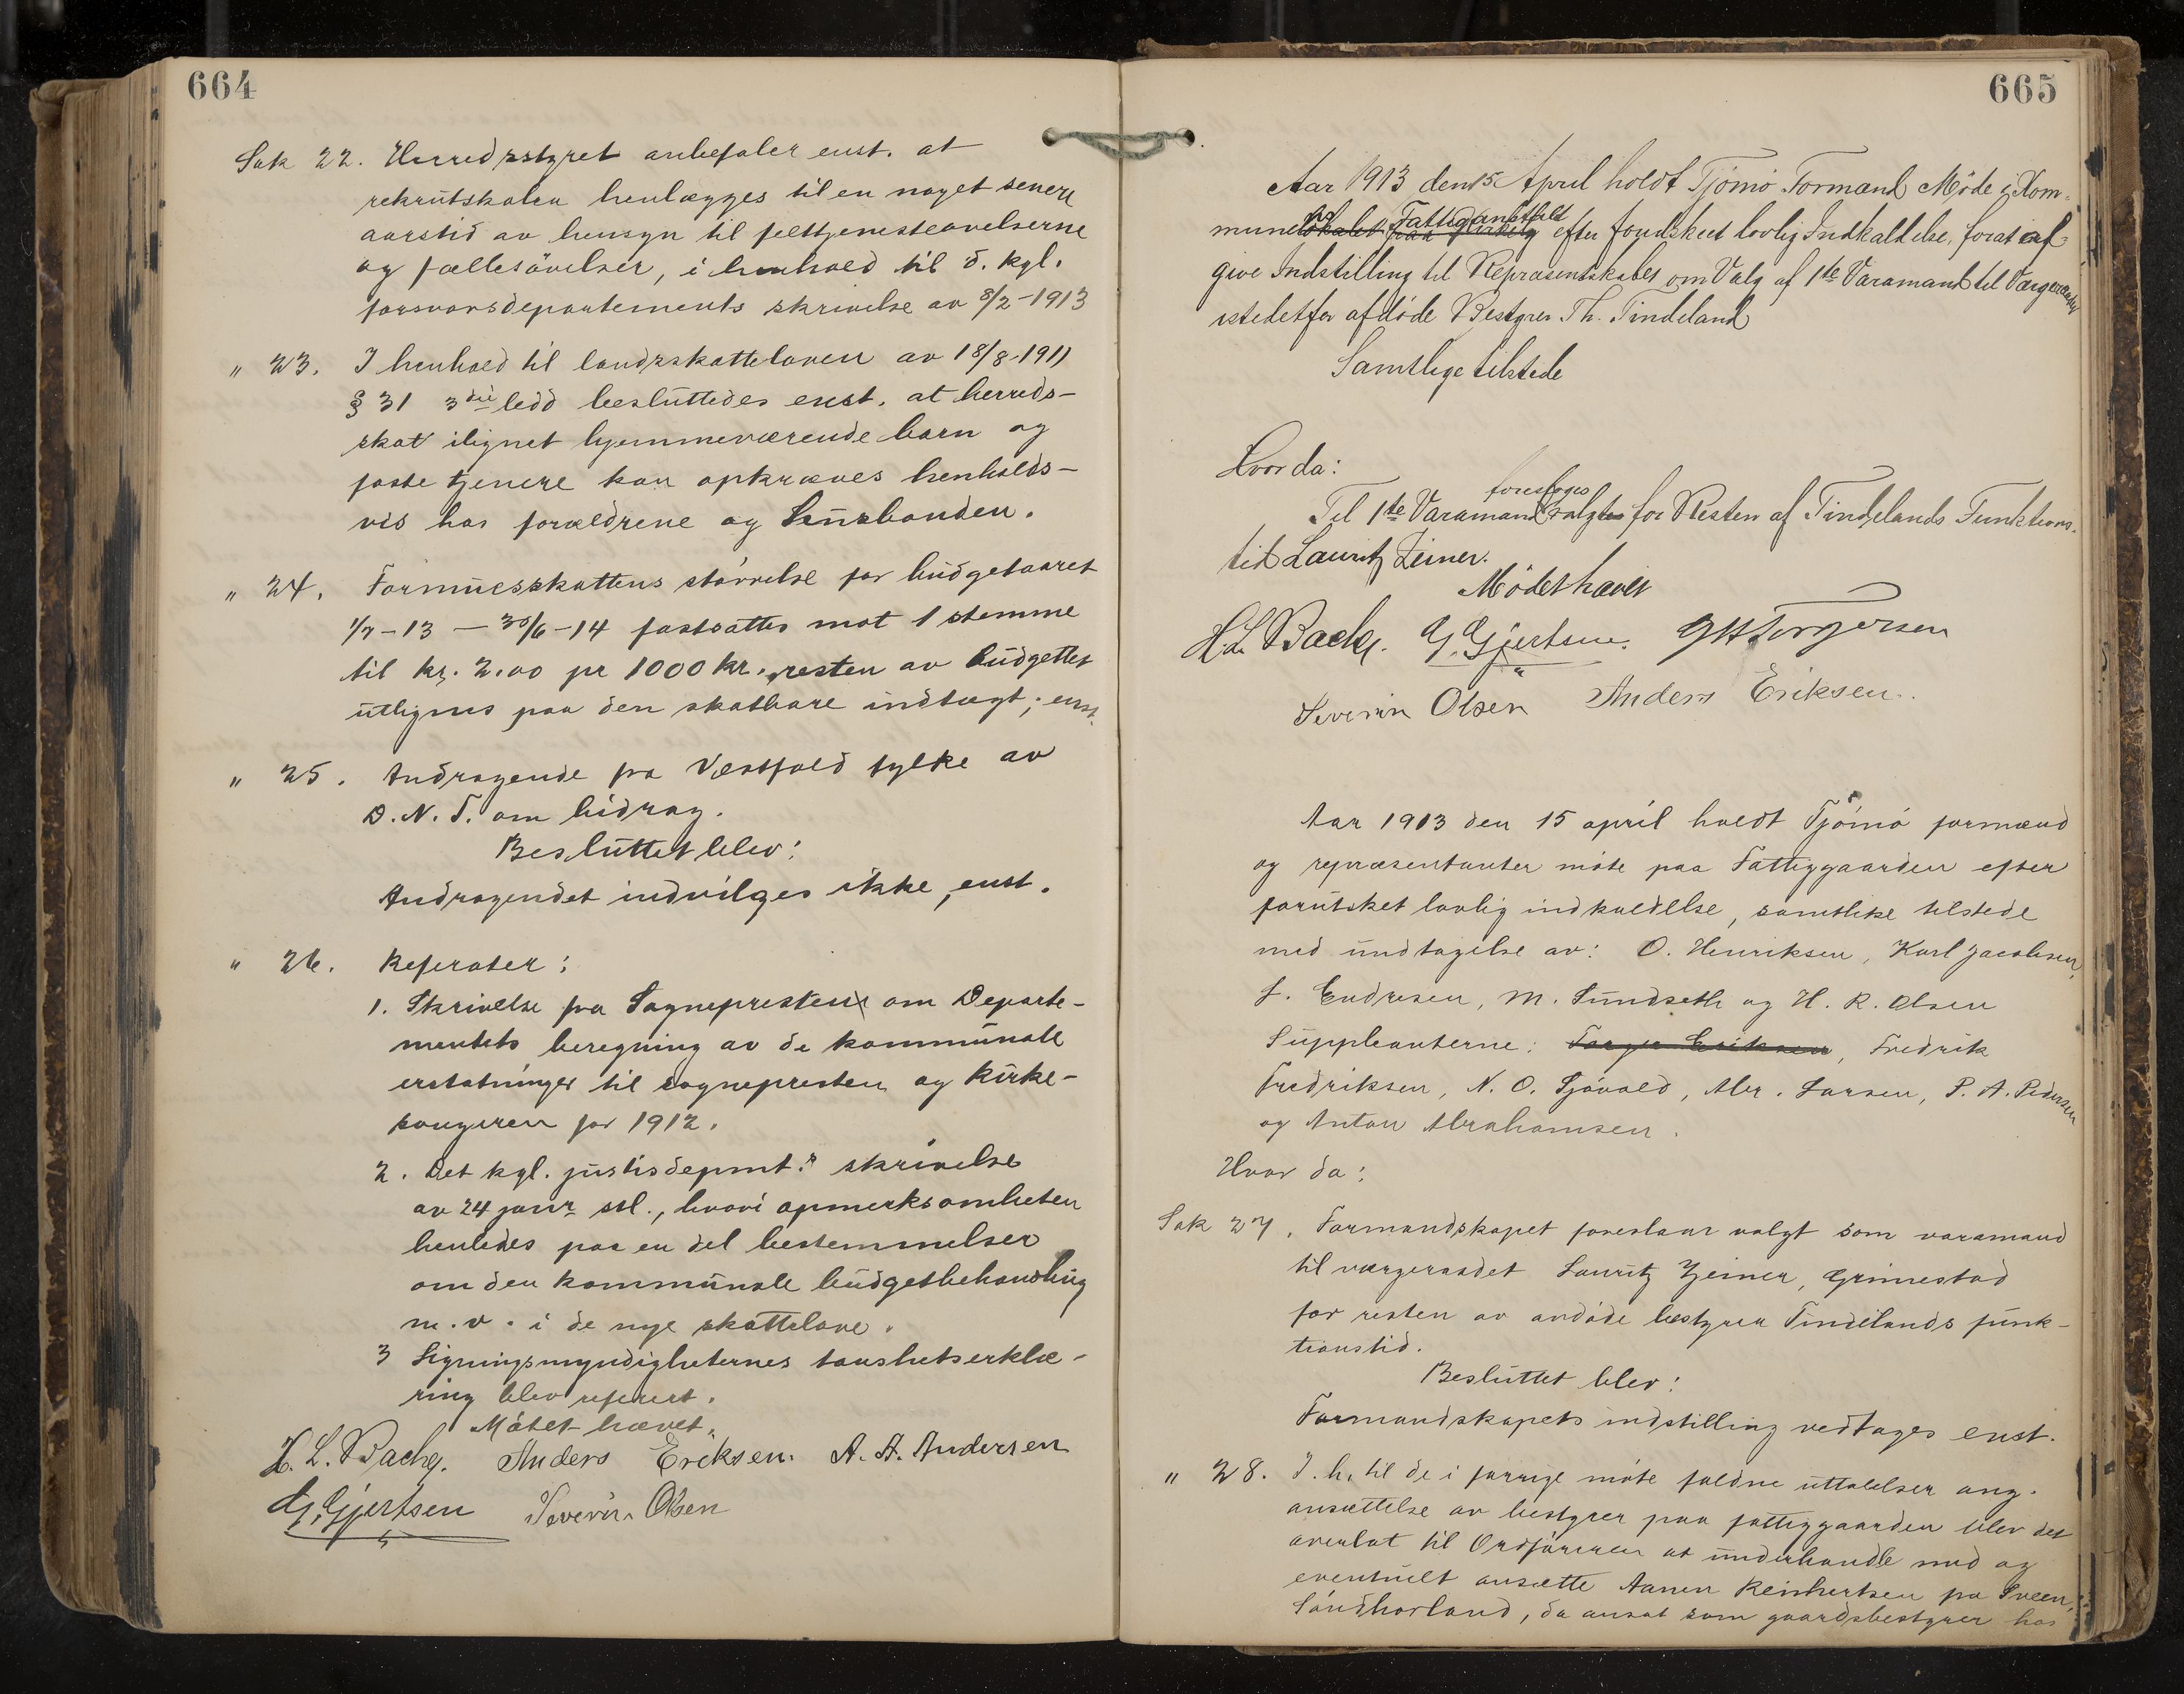 664
Sak 22. Herredsstyret anbefaler enst. at
rekrutskolen henlægges til en noget senere
aarstid av hensyn til felttjenesteøvelserne
og fællesövelser, i henhold til d. kgl.
forsvarsdepartements skrivelse av 8/2-1913
" 23. I henhold til landsskatteloven av 18/8-1911
§ 31 3die ledd besluttedes enst. at herreds-
skat ilignet hjemmeværende barn og
faste tjenere kan opkræves henholds-
vis hos forældrene og husbonden.
" 24. Formuesskattens størrelse for budgetaaret
1/7-13 — 30/6-14 fastsattes mot 1 stemme
til kr. 2.00 pr 1000 kr., resten av budgettet
utlignes paa den skatbare indtægt; enst.
" 25. Andragende fra Vestfold fylke av
D.N.T. om bidrag.
Besluttet blev:
Andragendet indvilges ikke, enst.
" 26. Referater:
1. Skrivelse fra Sognepresten om Departe-
mentets beregning av de kommunale
erstatninger til sognepresten og kirke-
sangeren for 1912.
2. Det kgl. justisdepmt.s skrivelse
av 24 janr. sl., hvori opmerksomheten
henledes paa en del bestemmelser
om den kommunale budgetbehandling
m.v. i de nye skattelove.
3 Ligningsmyndigheternes taushetserklæ-
ring blev referert.
Mötet hævet.
H. L. Bache. Anders Eriksen. A. A. Andersen
G. Gjertsen Severin Olsen
665
Aar 1913 den 15 April holdt Tjömö Formand Möde i Kom-
munelokalet paa Fattiganstalt efter foudskeet lovlig Indkaldelse, forat af
give Indstilling til Repræsentskabet om Valg af 1ste Varamand til Værgeraadet
istedetfor afdöde Bestyrer Th. Tindeland
Samtlige tilstede
Hvor da:
foreslages
Til 1ste Varamand valgtes for Resten af Tindelands Funktions-
tid Lauritz Zeiner.
Mödet hævet
H.L. Bache. G. Gjertsen. G H Torgersen
Severin Olsen Anders Eriksen.
Aar 1913 den 15 april holdt Tjömö formænd
og repræsentanter möte paa Fattiggaarden efter
forutsket lovlig indkaldelse, samtlike tilstede
med undtagelse av: O. Henriksen, Karl Jacobsen,
L. Endresen, M. Sundseth og H. R. Olsen
Suppleanterne: Torger Eriksen, Fredrik
Fredriksen, N. O. Sjövold, Abr. Larsen, P. A. Pedersen
og Anton Abrahamsen.
Hvor da:
Sak 27. Formandskapet foreslaar valgt som varamand
til værgeraadet Lauritz Zeiner, Grimestad
for resten av avdöde bestyrer Tindelands funk-
tionstid.
Besluttet blev:
Formandskapets indstilling vedtages enst.
" 28. I. h. til de i forrige möte faldne uttalelser ang.
ansættelse av bestyrer paa fattiggaarden blev det
overlat til Ordföreren at underhandle med og
eventuelt ansætte Aanen Reinhertsen fra Sveen,
Söndhorland, da ansat som gaardsbestyrer hos